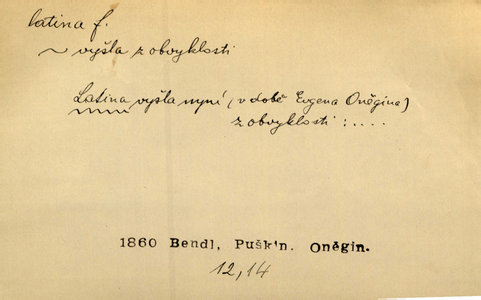 latina f.
~ vyšla z obvyklosti
Latina vyšla nyní (v době Evgena Oněgina)
z obvyklosti : ....
1860 Bendl, Puškin. Oněgin.
12,14